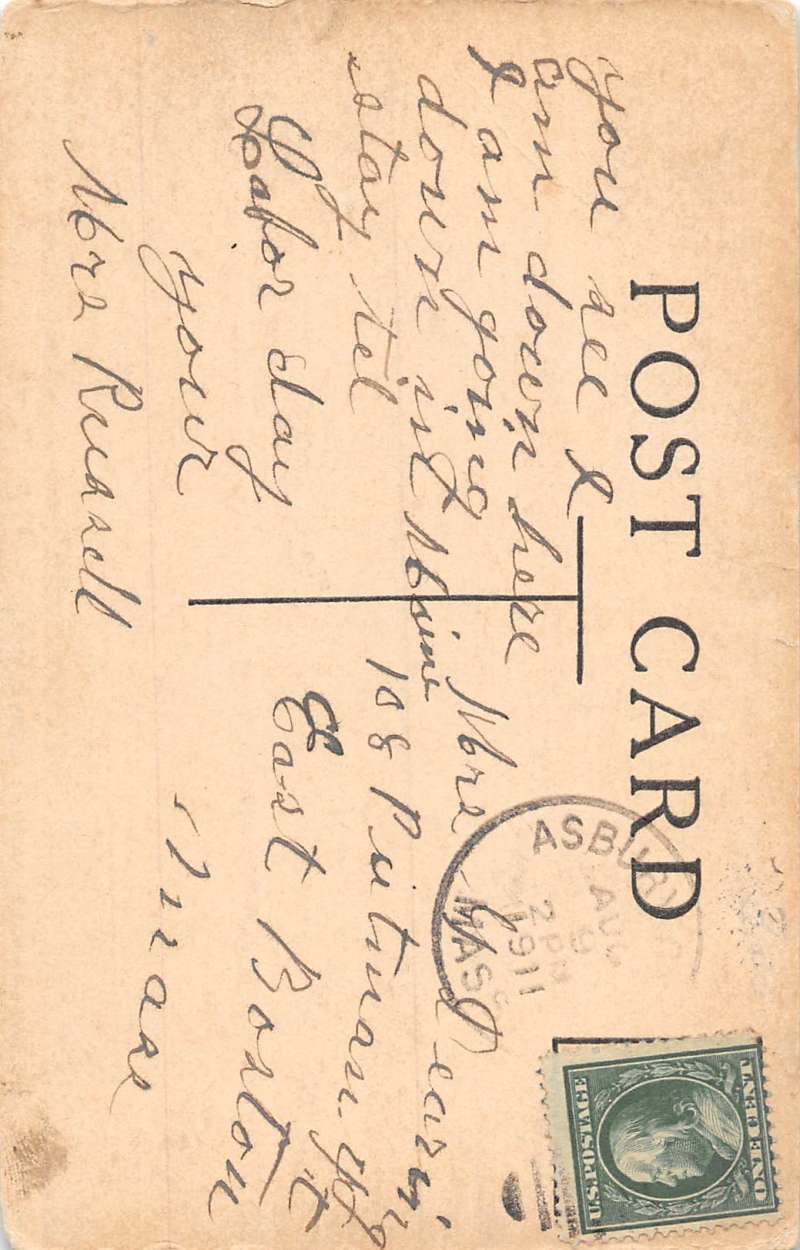 POST CARD
you see I
am down here
I am going
down int Maine
stay til
Labor day
your
Mrs Russell
ASBURY
AUG
9
2 PM
1911
MASS
U.S. POSTAGE
ONE CENT
Mrs Dearing
108 Putnam St
East Boston
Mass